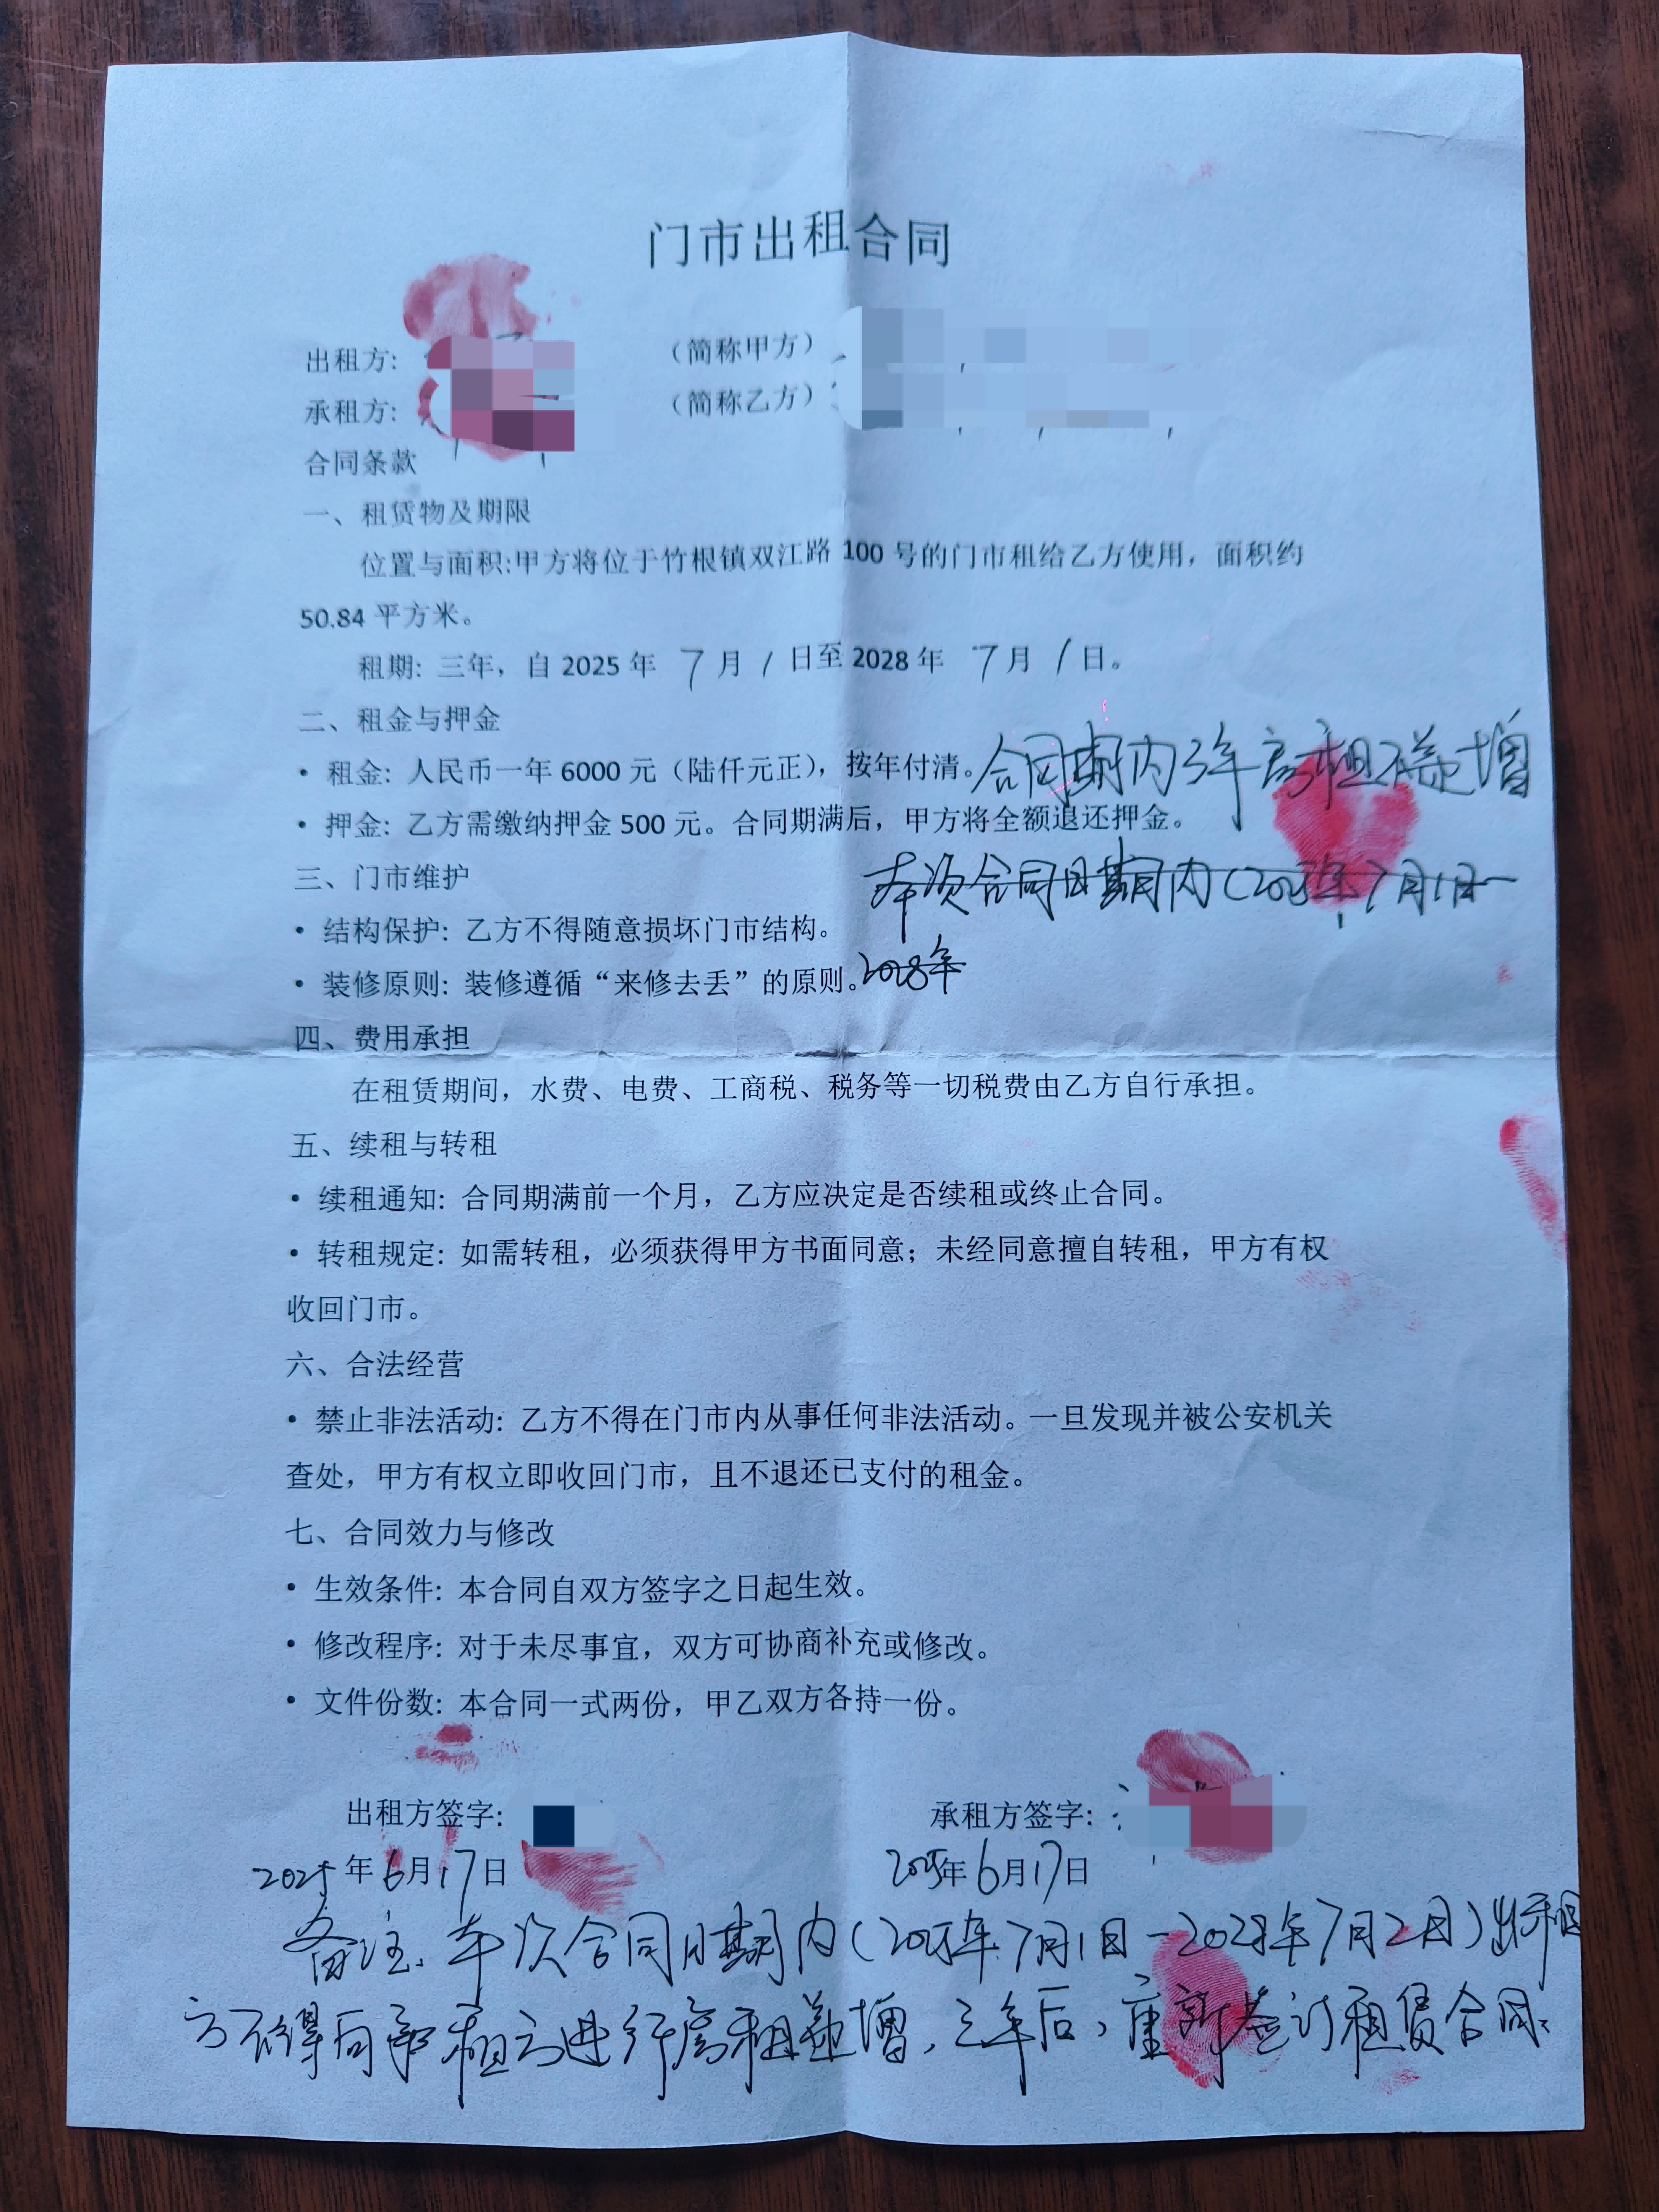 门市出租合同
出租方: （简称甲方）
承租方: （简称乙方）
合同条款
一、租赁物及期限
位置与面积:甲方将位于竹根镇双江路 100 号的门市租给乙方使用，面积约
50.84 平方米。
租期: 三年，自 2025 年 7 月 1 日至 2028 年 7 月 1 日。
二、租金与押金
• 租金: 人民币一年 6000 元（陆仟元正），按年付清。合同期内3年房租不递增
• 押金: 乙方需缴纳押金 500 元。合同期满后，甲方将全额退还押金。
三、门市维护
本次合同日期内(2025年7月1日—
• 结构保护: 乙方不得随意损坏门市结构。
• 装修原则: 装修遵循“来修去丢”的原则。2028年
四、费用承担
在租赁期间，水费、电费、工商税、税务等一切税费由乙方自行承担。
五、续租与转租
• 续租通知: 合同期满前一个月，乙方应决定是否续租或终止合同。
• 转租规定: 如需转租，必须获得甲方书面同意；未经同意擅自转租，甲方有权
收回门市。
六、合法经营
• 禁止非法活动: 乙方不得在门市内从事任何非法活动。一旦发现并被公安机关
查处，甲方有权立即收回门市，且不退还已支付的租金。
七、合同效力与修改
• 生效条件: 本合同自双方签字之日起生效。
• 修改程序: 对于未尽事宜，双方可协商补充或修改。
• 文件份数: 本合同一式两份，甲乙双方各持一份。
出租方签字: 承租方签字:
2025年6月17日 2025年6月17日
备注: 本次合同日期内(2025年7月1日—2028年7月2日)出租
方不得向承租方进行房租递增，三年后，重新签订租赁合同。